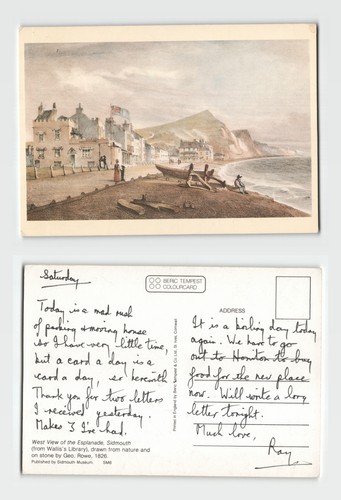 Saturday
Today is a mad rush
of packing & moving house
so I have very little time,
but a card a day is a
card a day, so herewith
Thank you for two letters
I received yesterday.
Makes 3 I've had.
West View of the Esplanade, Sidmouth
(from Wallis's Library), drawn from nature and
on stone by Geo. Rowe, 1826.
Published by Sidmouth Museum. SM6
BERIC TEMPEST
COLOURCARD
Printed in England by Beric Tempest & Co. Ltd. St. Ives, Cornwall
ADDRESS
It is a boiling day today
again. We have to go
out to Honiton to buy
food for the new place
now. Will write a long
letter tonight.
Much love,
Ray